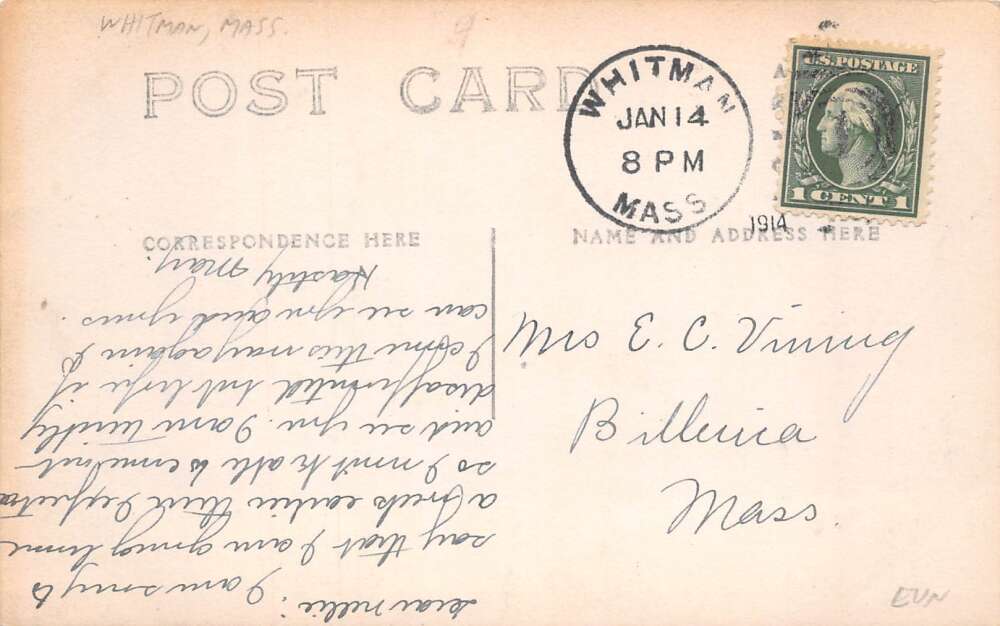 WHITMAN, MASS.
POST CARD
WHITMAN
JAN 14
8 PM
MASS
1914
U.S. POSTAGE
1 CENT 1
CORRESPONDENCE HERE
NAME AND ADDRESS HERE
Mrs E. C. Vining
Billerica
Mass.
Dear Nellie:
I am sorry to
say that I am going home
a week earlier than I expected
so I won't be able to come out
and see you. I am terribly
disappointed but hope if
I come this way again to
can see you and yours.
Hastily May.
EUN